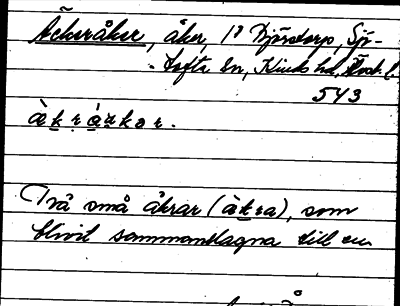 Åckeråker, åker, 1? Björstorp, Sjö-
tofta sn, Kinds hd, Älvsb. l.
543
Två små åkrar (àkra), som
blivit sammanslagna till en